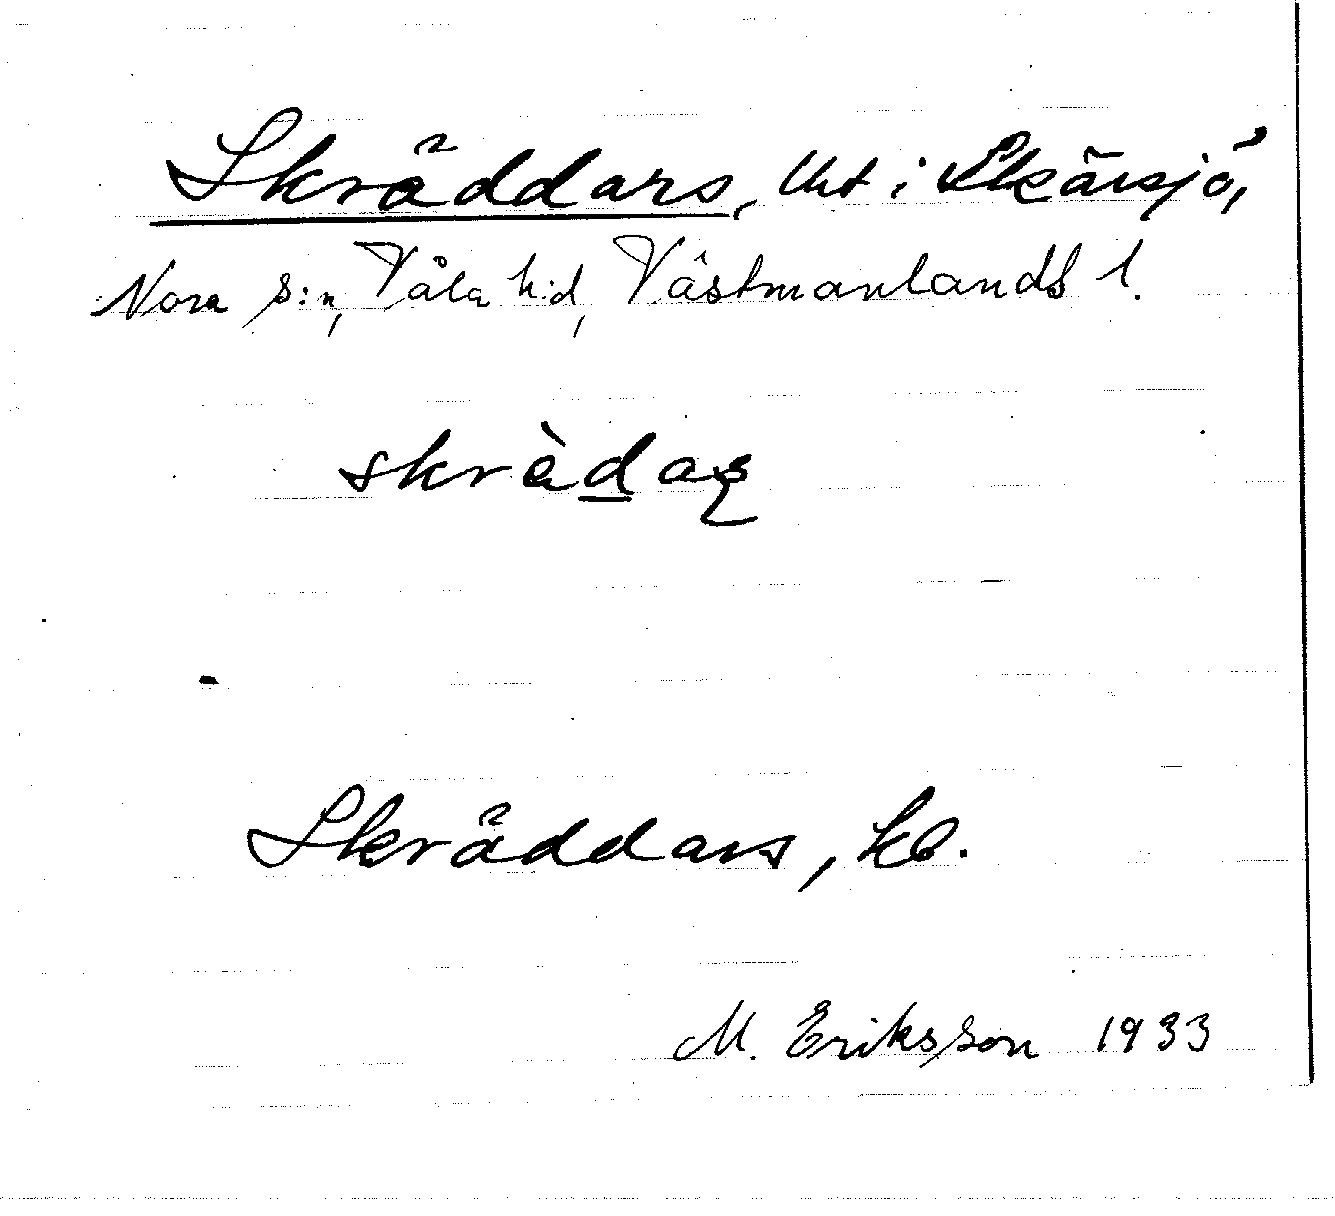 Skräddars, Unt i Skärsjö,
Nora s:n, Våla h:d, Västmanlands l.
skrädas
Skräddars, kb.
M. Eriksson 1933